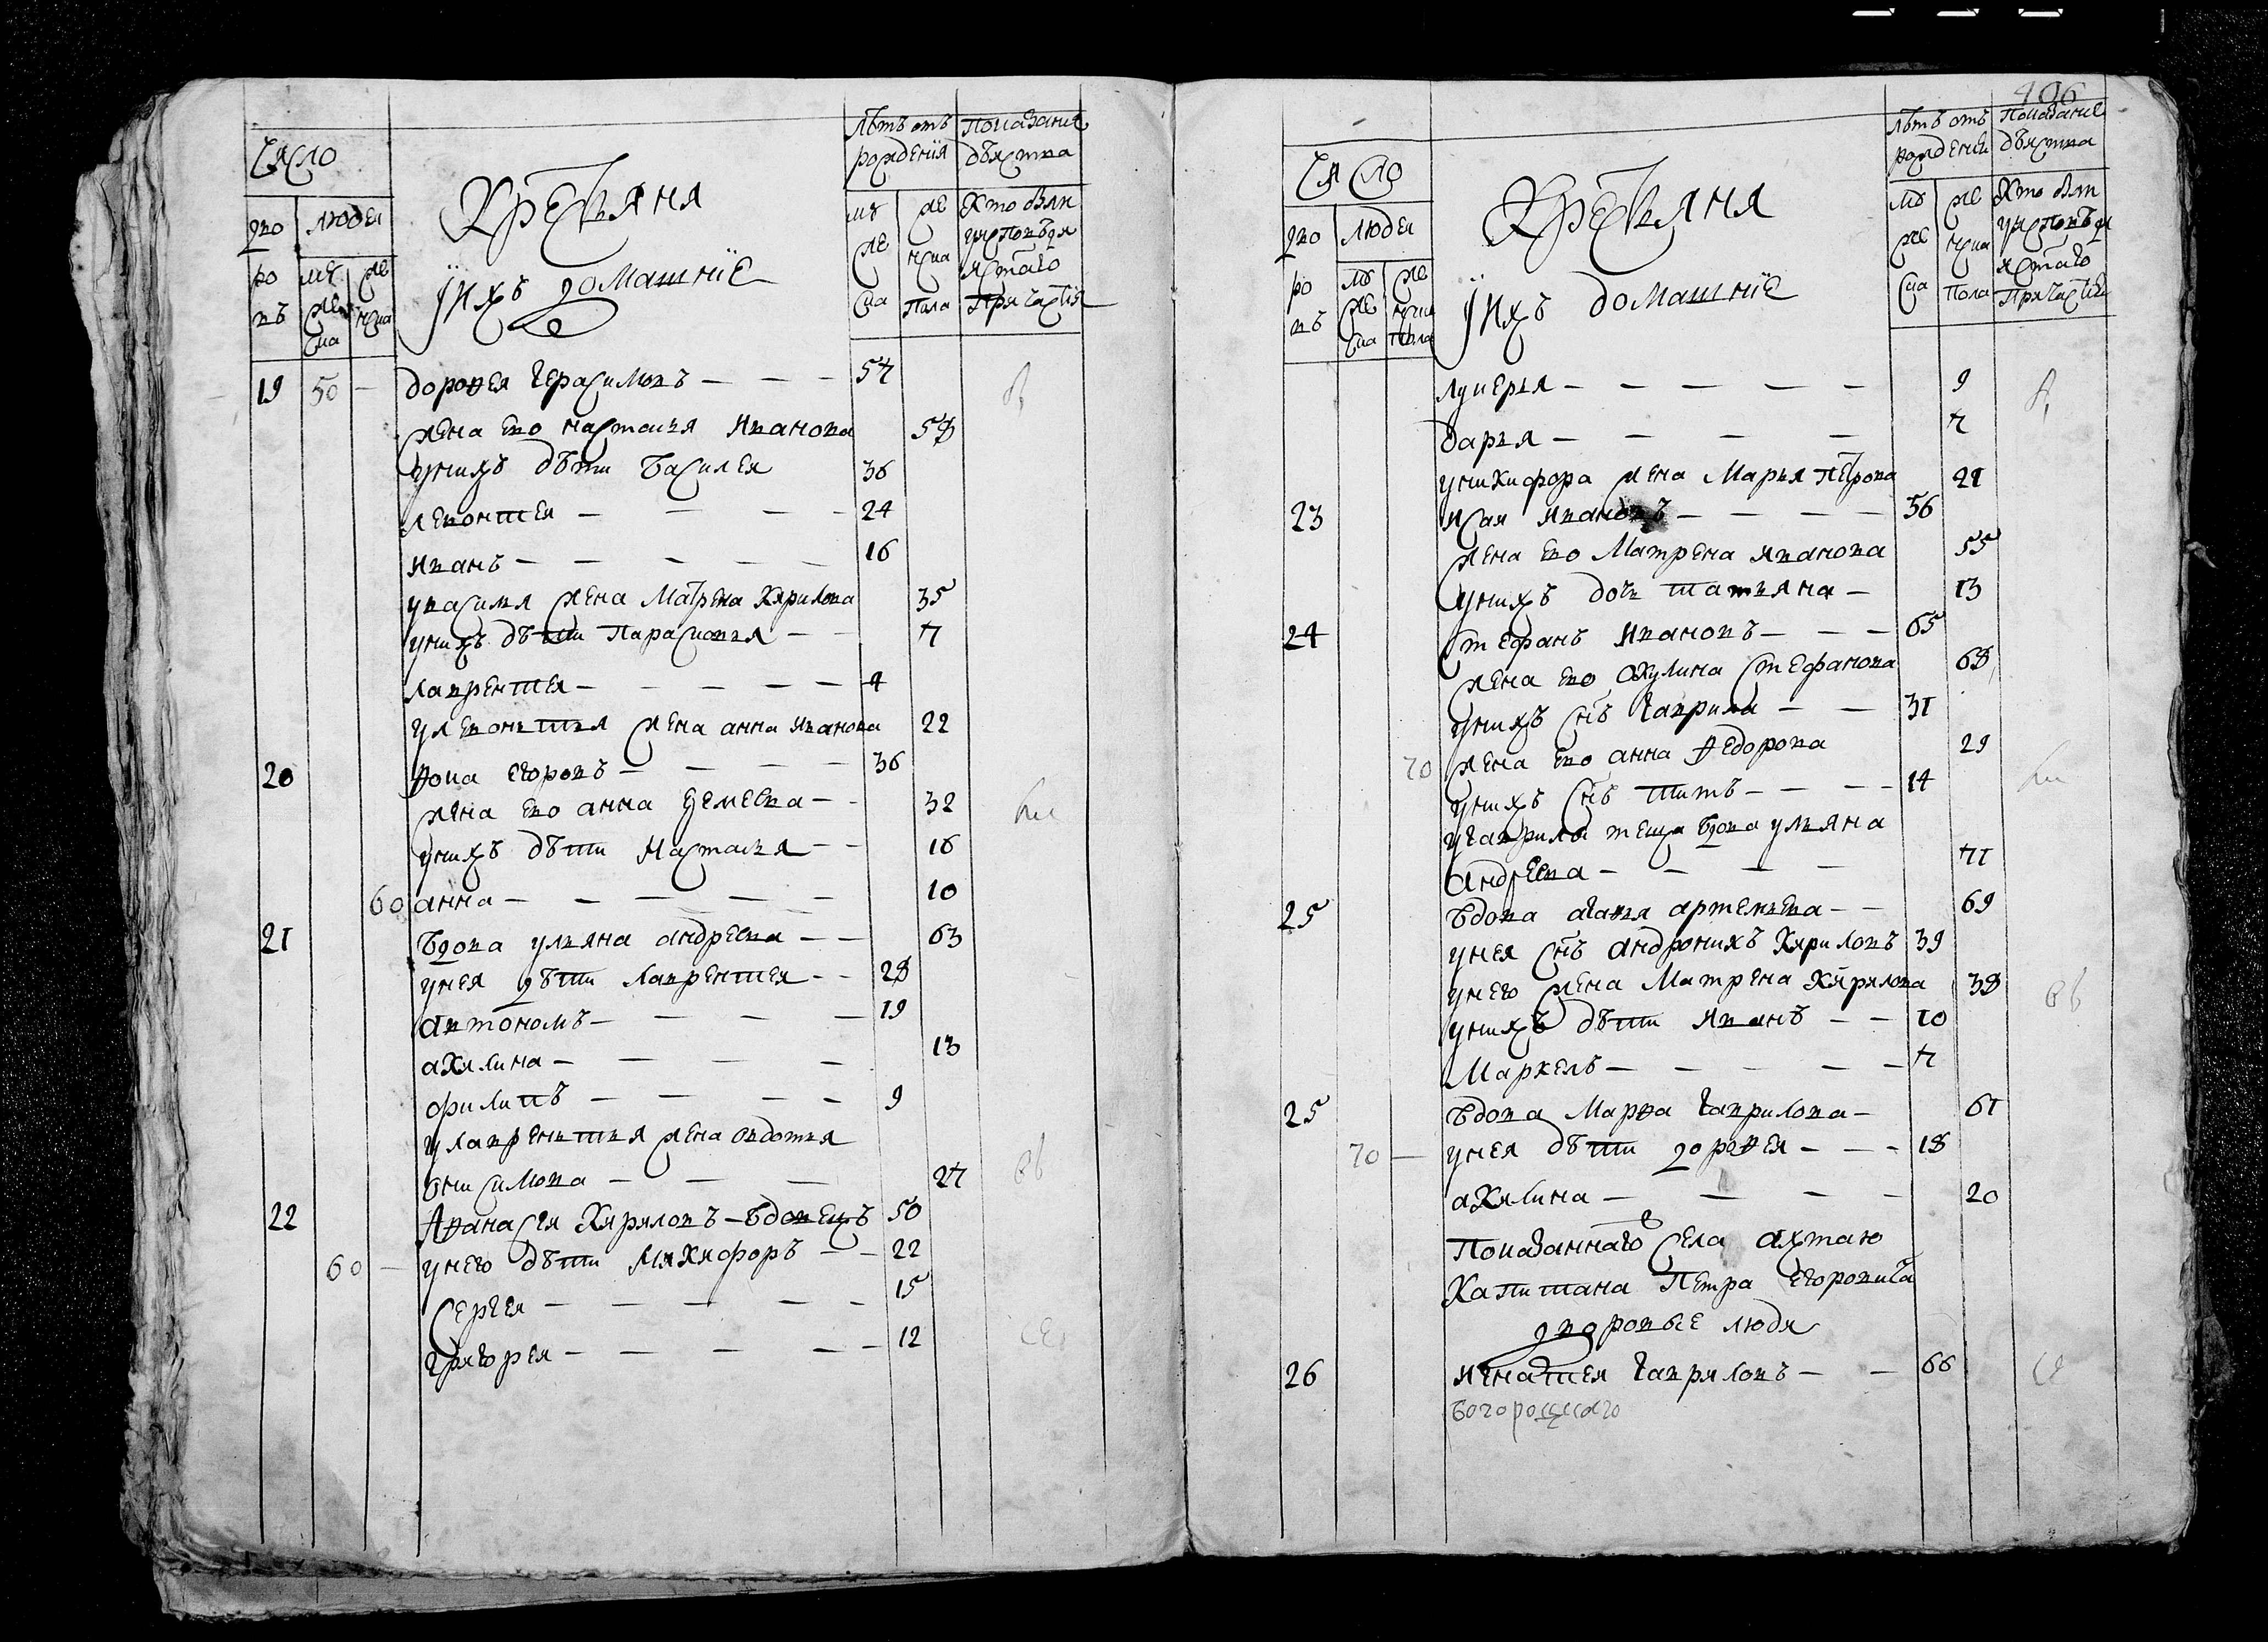 Число
дворовъ
людей
мужеска
женска
Крестьяня
и ихъ домашніе
Лѣтъ отъ рожденія
мужеска
женска пола
Показаніе дѣйства
Кто былъ у исповѣди и святаго причастія
19 50 — дорофей герасимовъ — — — 57
жена ево настасья иванова 58
у нихъ дѣти василей 36
левонтей — — — 24
иванъ — — — — — 16
у василья жена матрена кирилова 35
у нихъ дѣти парасковья — — 7
лаврентей — — — — — 4
у левонтья жена анна иванова 22
20 фока егоровъ — — — — 36
жена ево анна еремеева — — 32
у нихъ дѣти настасья — — 16
60 анна — — — — — 10
21 вдова ульяна андреева — — 63
у нея дѣти лаврентей — — 28
автономъ — — — — 19
акилина — — — — 13
филипъ — — — — 9
у лаврентья жена овдотья
онисимова — — — 27
22 афанасей кириловъ — вдовецъ 50
60 — у него дѣти никифоръ — — 22
сергей — — — — — 15
григорей — — — — — 12
406
Число
дворовъ
людей
мужеска
женска пола
Крестьяня
и ихъ домашніе
Лѣтъ отъ рожденія
мужеска
женска пола
Показаніе дѣйства
Кто былъ у исповѣди и святаго причастія
лукерья — — — — — 9
дарья — — — — 7
у никифора жена марья петрова 21
23 исай ивановъ — — — — 56
жена ево матрена иванова 55
у нихъ дочь татьяна — 13
24 стефанъ ивановъ — — — 65
жена ево окулина стефанова 68
у нихъ снъ гаврила — — 31
70 жена ево анна федорова 29
у нихъ снъ титъ — — — — 14
у гаврилы теща вдова ульяна
андреева — — — — 71
25 вдова агафья артемьева — — 69
у нея снъ андроникъ кириловъ 39
у него жена матрена кирилова 38
у нихъ дѣти иванъ — — 10
маркелъ — — — — — 7
25 вдова марфа гаврилова — 61
70 — у нея дѣти дорофей — — — 18
акилина — — — — 20
показаннаго села ахтаю
капитана петра егоровича
дворовые людя
26 игнатей гавриловъ — — 66